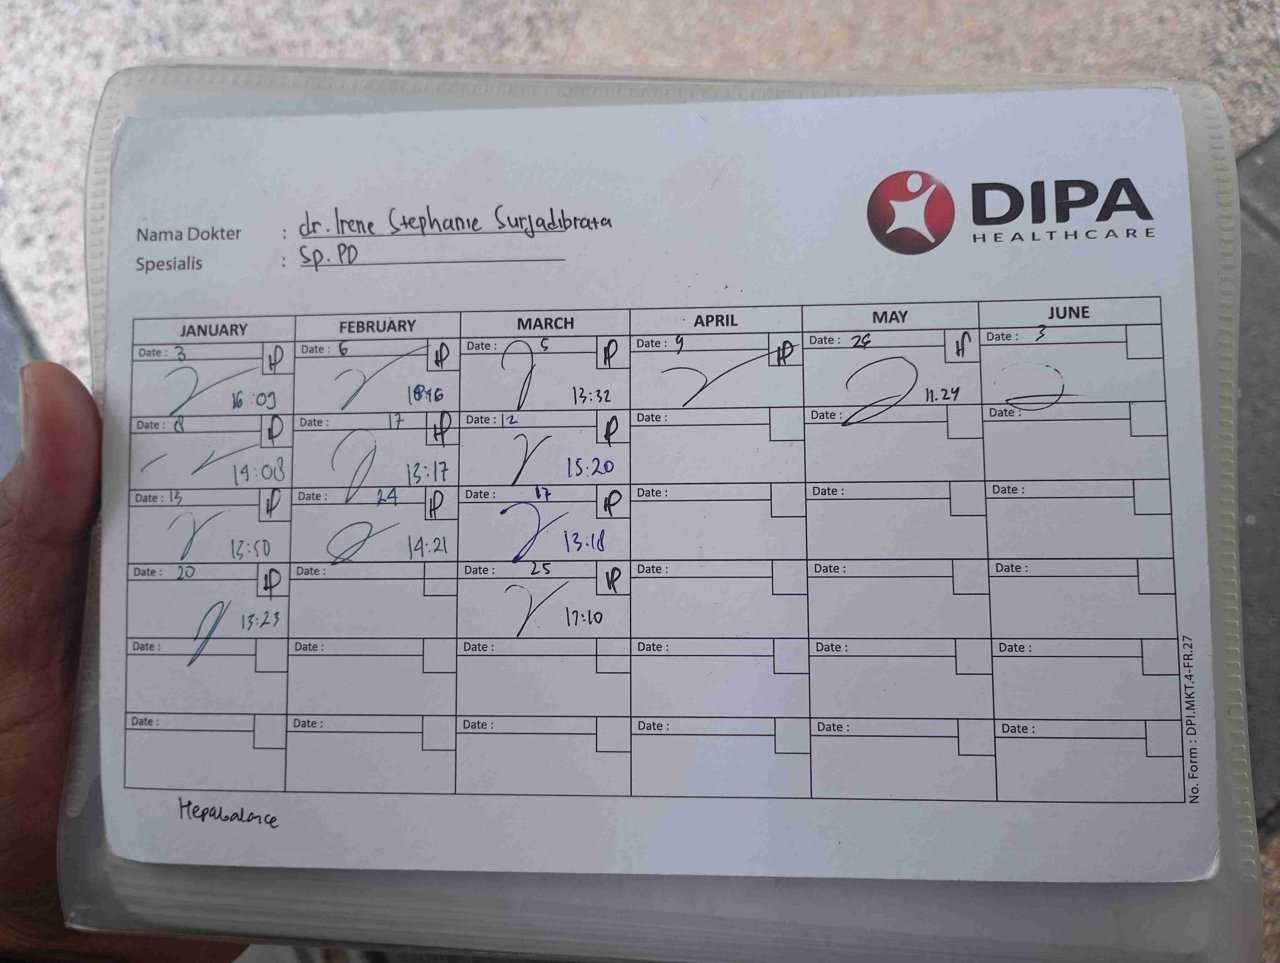 DIPA
HEALTHCARE
Nama Dokter : dr. Irene Stephanie Surjadibrata
Spesialis : Sp. PD
JANUARY FEBRUARY MARCH APRIL MAY JUNE
Date : 3 Date : 6 Date : 5 Date : 9 Date : Date : 3
16:09 13:32 11.24
Date : 8 Date : 17 Date : 12 Date : Date : Date :
14:08 13:17 15:20
Date : 13 Date : 24 Date : 17 Date : Date : Date :
13:50 14:21 13:18
Date : 20 Date : Date : 25 Date : Date : Date :
13:23 17:10
Date : Date : Date : Date : Date : Date :
Date : Date : Date : Date : Date : Date :
Hepabalance
No. Form : DPI.MKT.4-FR.27